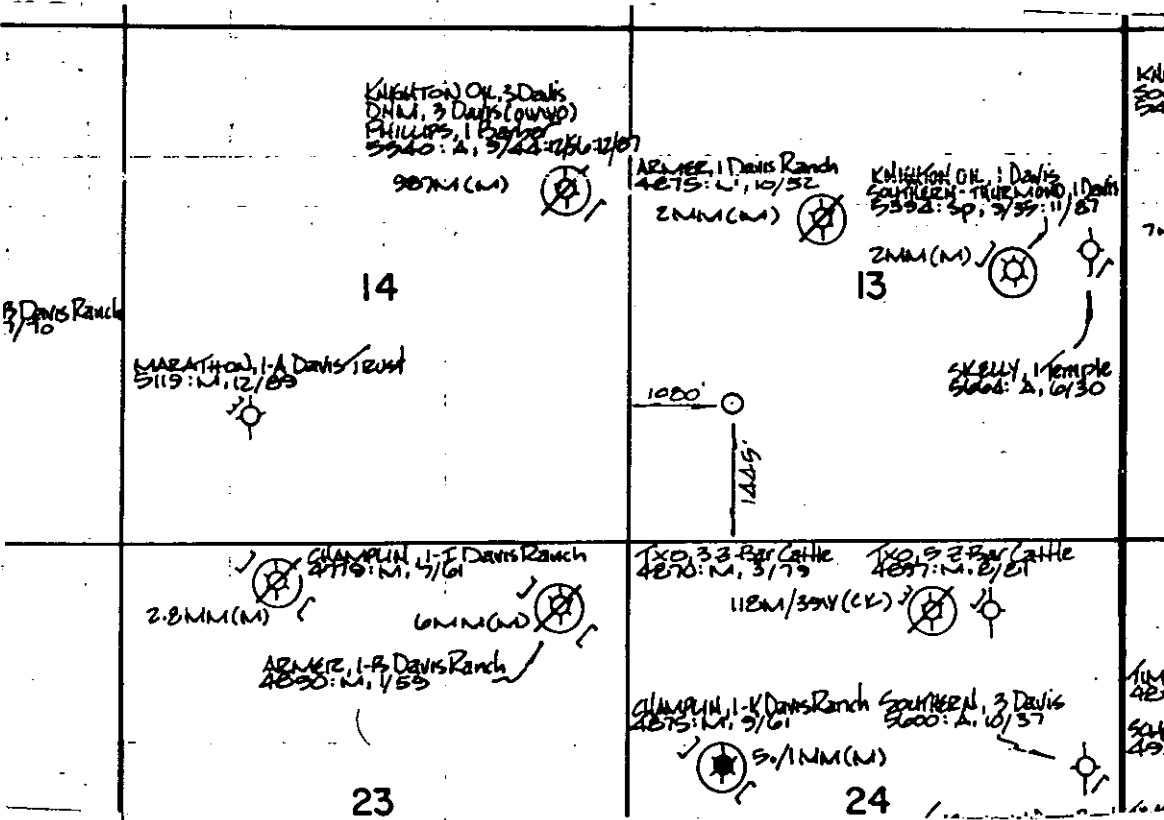 KNIGHTON OIL, 3 Davis
DNM, 3 Davis (OWWO)
PHILLIPS, 1 Barbor
5340: A, 3/44:12/56:12/87
987M (M)
ARMER, 1 Davis Ranch
4875: M, 10/52
2MM (M)
KNIGHTON OIL, 1 Davis
SOUTHERN-THURMOND, 1 Davis
5394: Sp, 3/35: 11/87
2MM (M)
14
13
B Davis Ranch
MARATHON, 1-A Davis Trust
5119: M, 12/89
SKELLY, 1 Temple
A, 6/30
1080'
1445'
CHAMPLIN, 1-I Davis Ranch
4779: M, 7/61
2.8MM (M)
6MM (M)
ARMER, 1-B Davis Ranch
4890: M, 1/59
TXO, 3 Z Bar Cattle
4870: M, 3/79
TXO, 5 Z Bar Cattle
4897: M, 2/81
118M/39W (CK)
CHAMPLIN, 1-K Davis Ranch
4875: M, 9/61
SOUTHERN, 3 Davis
5600: A, 10/37
5./1MM (M)
23
24